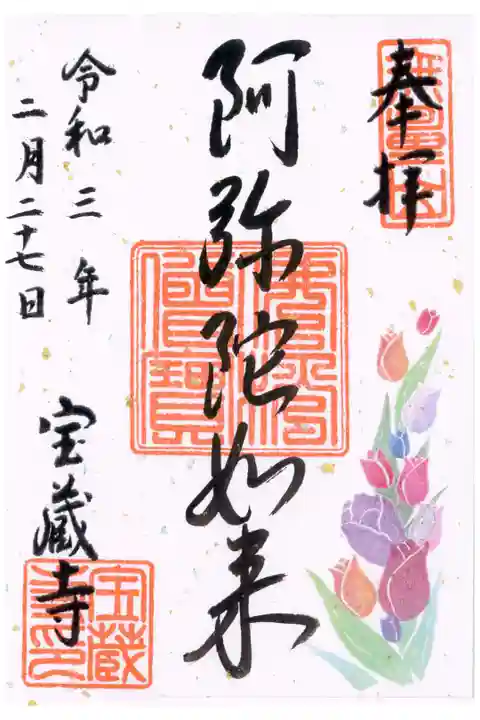 奉拝
阿弥陀如来
令和三年
二月二十七日
宝蔵寺
宝蔵
寺印